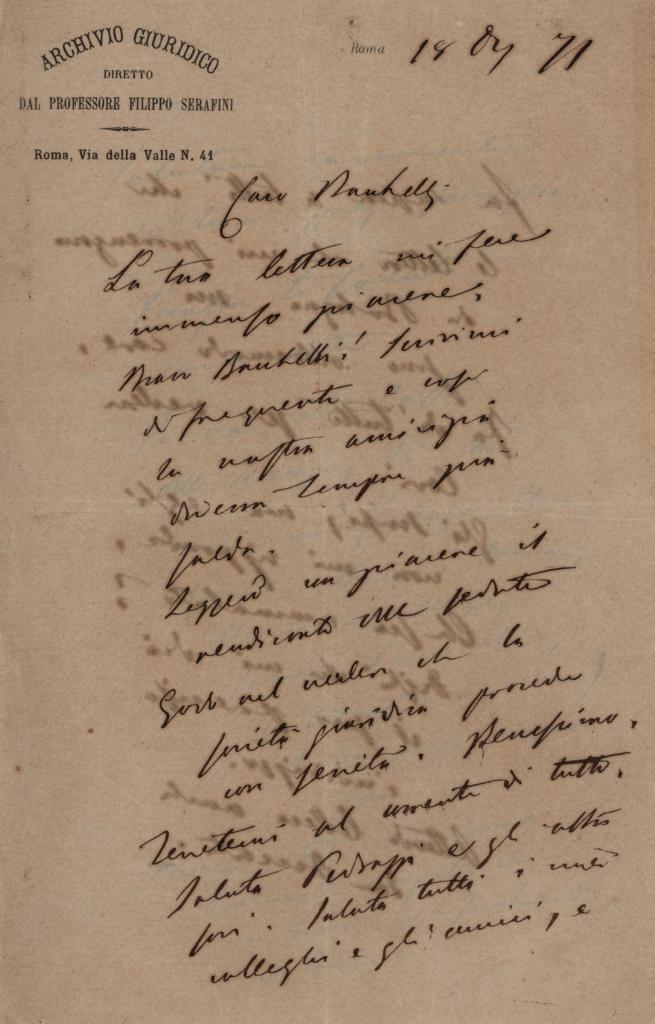 ARCHIVIO GIURIDICO
DIRETTO
DAL PROFESSORE FILIPPO SERAFINI
Roma, Via della Valle N. 41
Roma 18 71
Caro
La tua lettera mi fece
immenso piacere,
Bravo ! Scrivimi
di frequente e così
la nostra amicizia
diverrà sempre più
salda.
Leggerò con piacere il
rendiconto delle sedute
Godo nel vedere che la
società giuridica procede
con serietà. Benessimo.
Tenetemi al corrente di tutto.
Saluta e gli altri
soci. Saluta tutti i miei
colleghi e gli amici, e